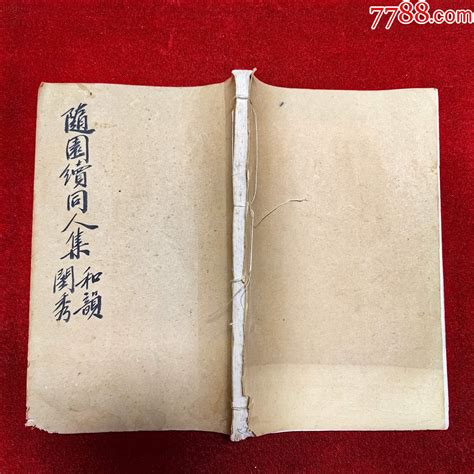 7788.com
隨園續同人集
和韻
閨秀